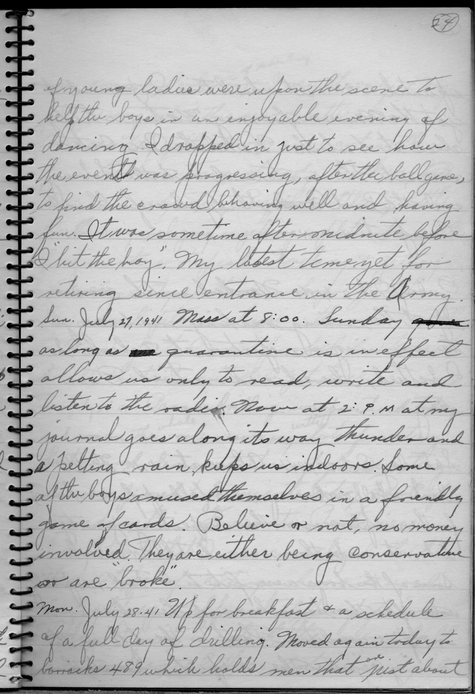 24
of young ladies were upon the scene to
help the boys in an enjoyable evening of
dancing. I dropped in just to see how
the event was progressing, after the ball game,
to find the crowd behaving well and having
fun. It was sometime after midnite before
I "hit the hay". My latest time yet for
retiring since entrance in the Army.
Sun. July 27, 1941 Mass at 8:00. Sunday
as long as quarantine is in effect
allows us only to read, write and
listen to the radio. Now at 2: P.M as my
journal goes along its way thunder and
a pelting rain, keeps us indoors. Some
of the boys amused themselves in a friendly
game of cards. Believe or not, no money
involved. They are either being conservative
or are "broke".
Mon. July 28-41 Up for breakfast & a schedule
of a full day of drilling. Moved again today to
barracks 489 which holds men that are just about